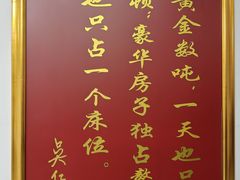 黄金数吨，一天也只
顿；豪华房子独占
也只占一个床位。
吴仁